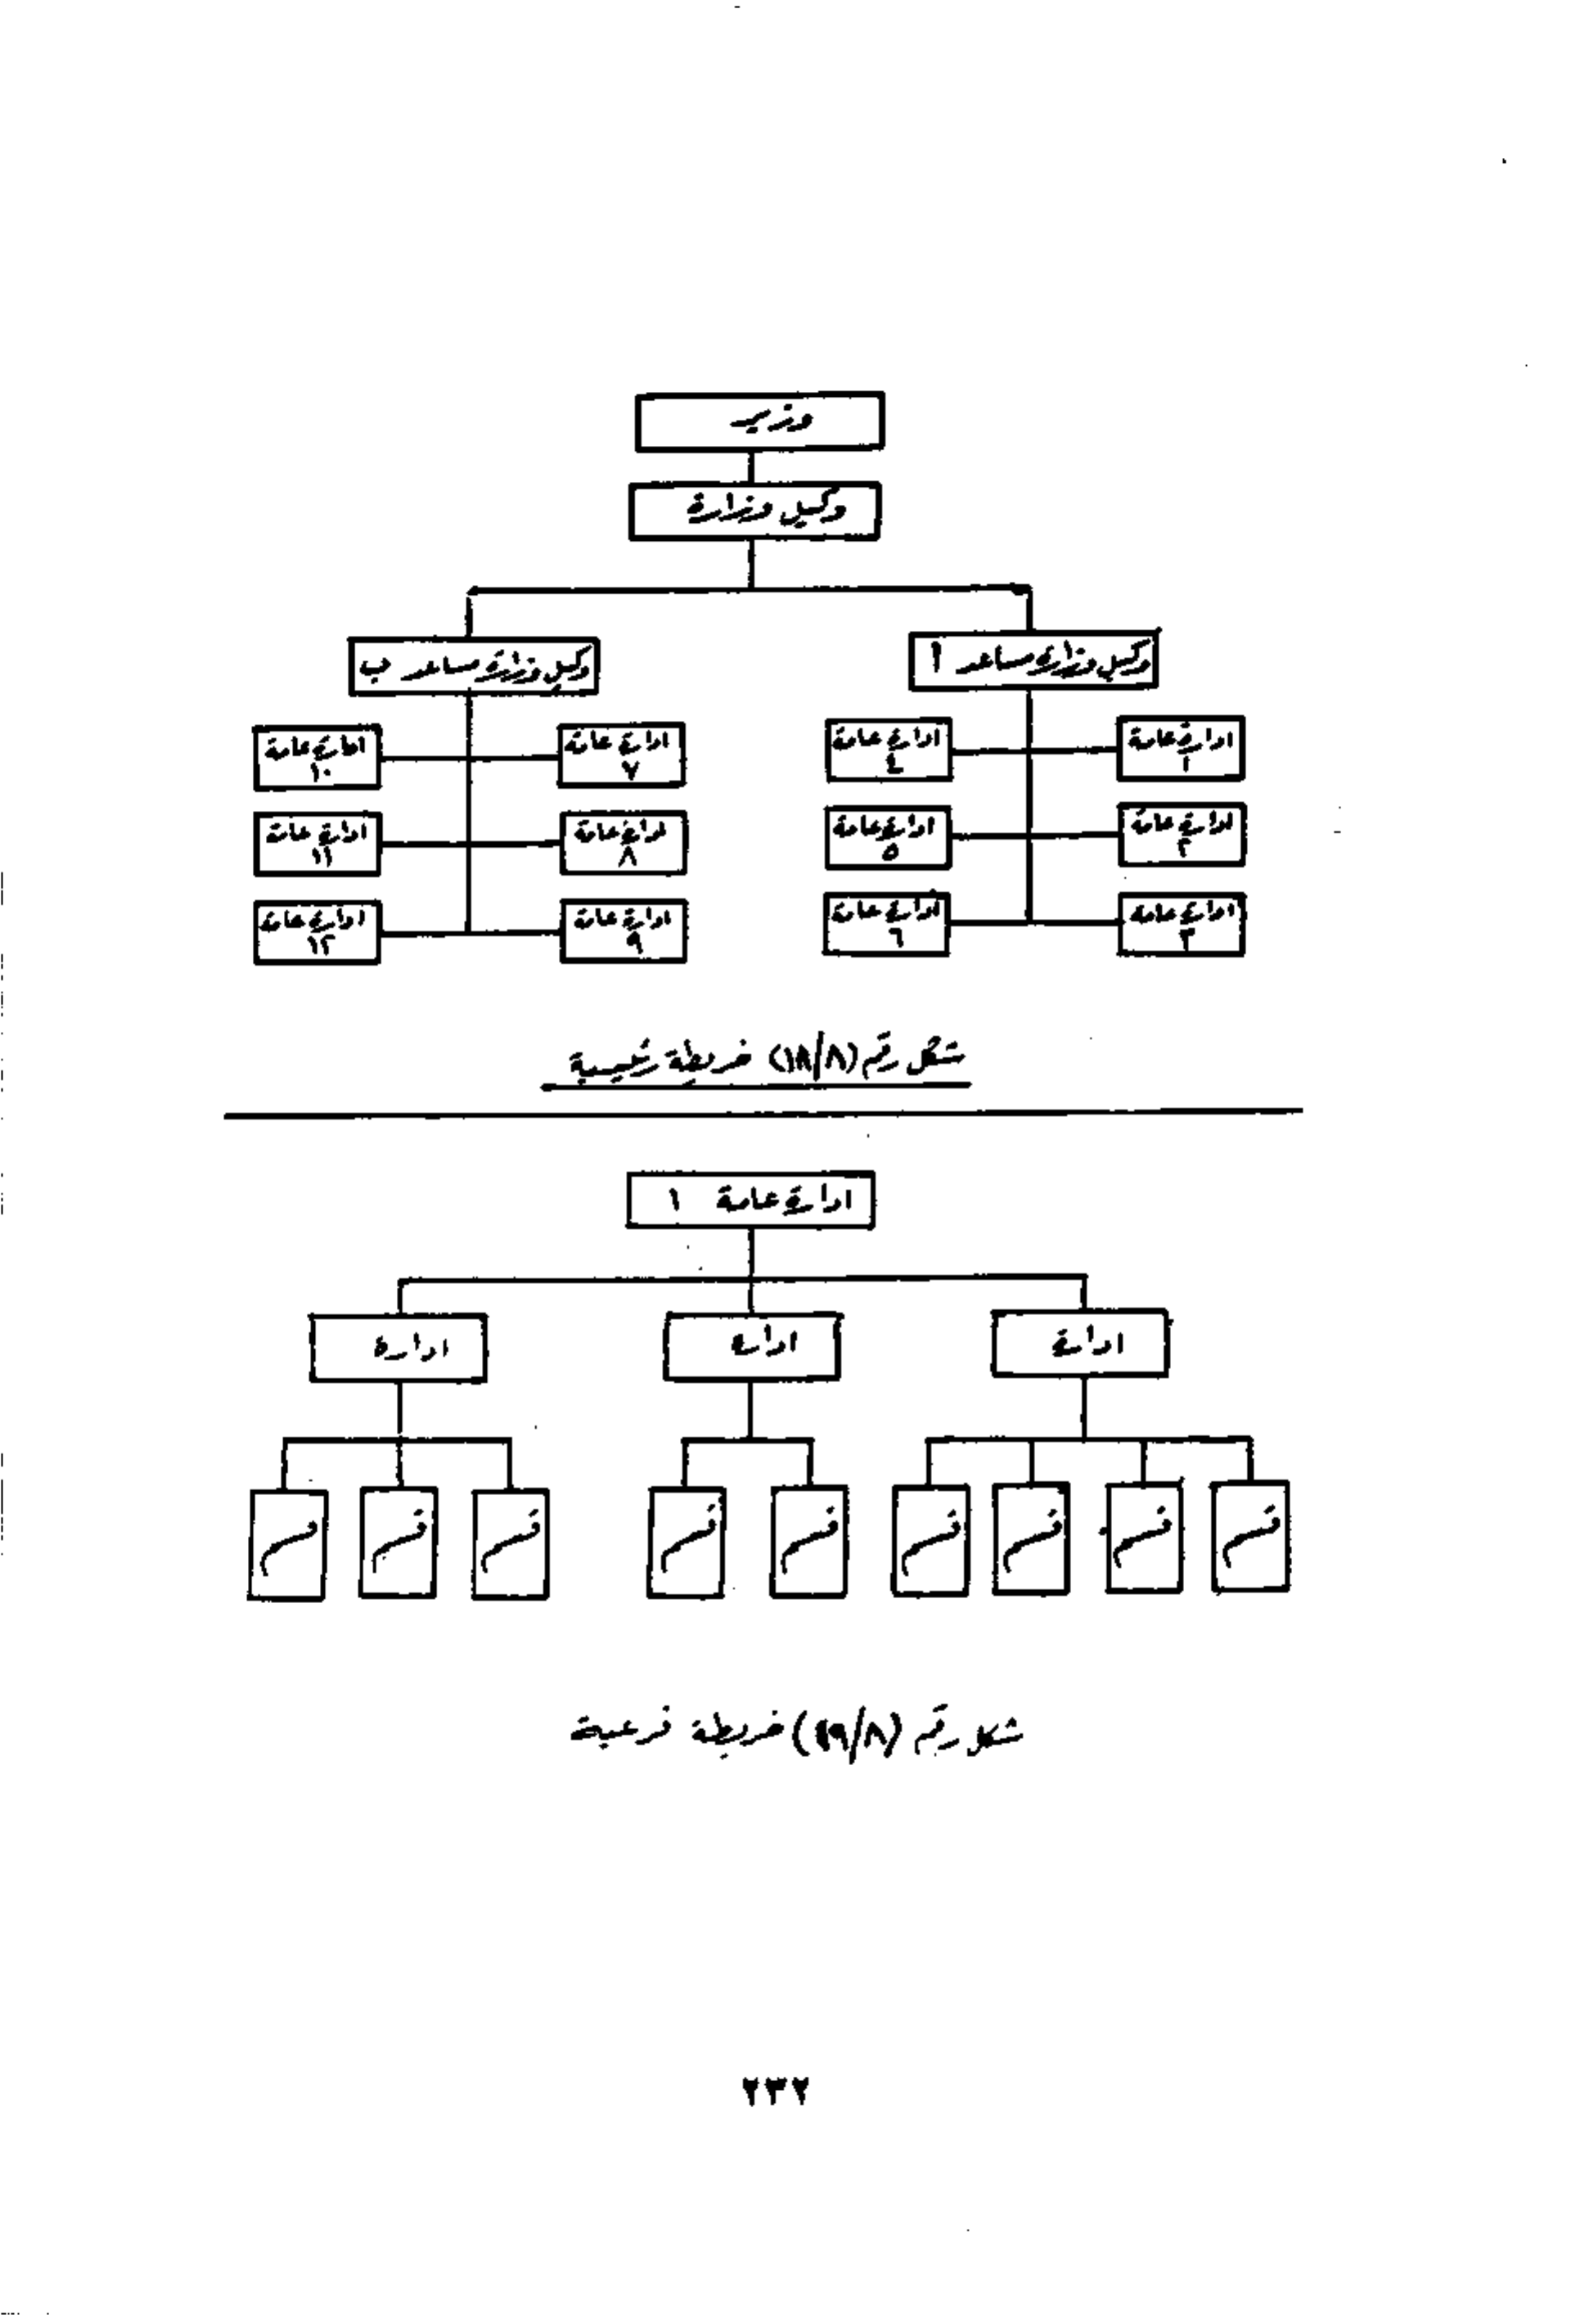 وزير
وكيل وزارة
وكيل وزارة مساعد أ
وكيل وزارة مساعد ب
ادارة عامة
١
ادارة عامة
٤
ادارة عامة
٧
ادارة عامة
١٠
ادارة عامة
٢
ادارة عامة
٥
ادارة عامة
٨
ادارة عامة
١١
ادارة عامة
٣
ادارة عامة
٦
ادارة عامة
٩
ادارة عامة
١٢
شكل رقم (١٨/٨) خريطة رئيسية
ادارة عامة ١
ادارة
ادارة
ادارة
قسم
قسم
قسم
قسم
قسم
قسم
قسم
قسم
قسم
شكل رقم (١٩/٨) خريطة فرعية
٢٣٢